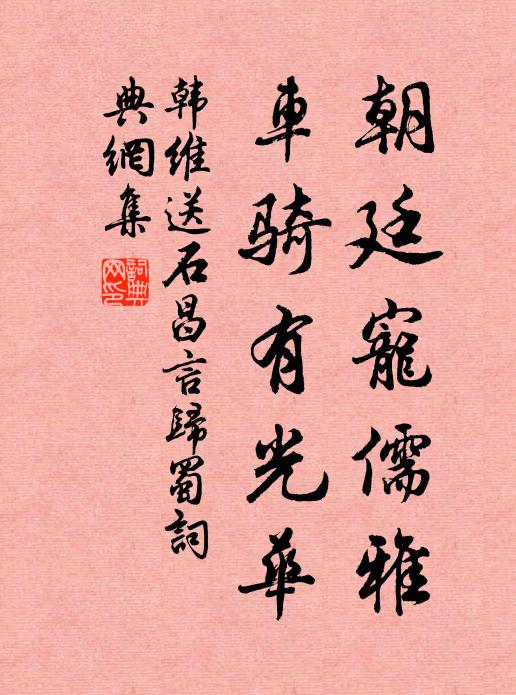 朝廷寵儒雅
車騎有光華
韩維送石昌言歸蜀詞
典網集
詞典網印